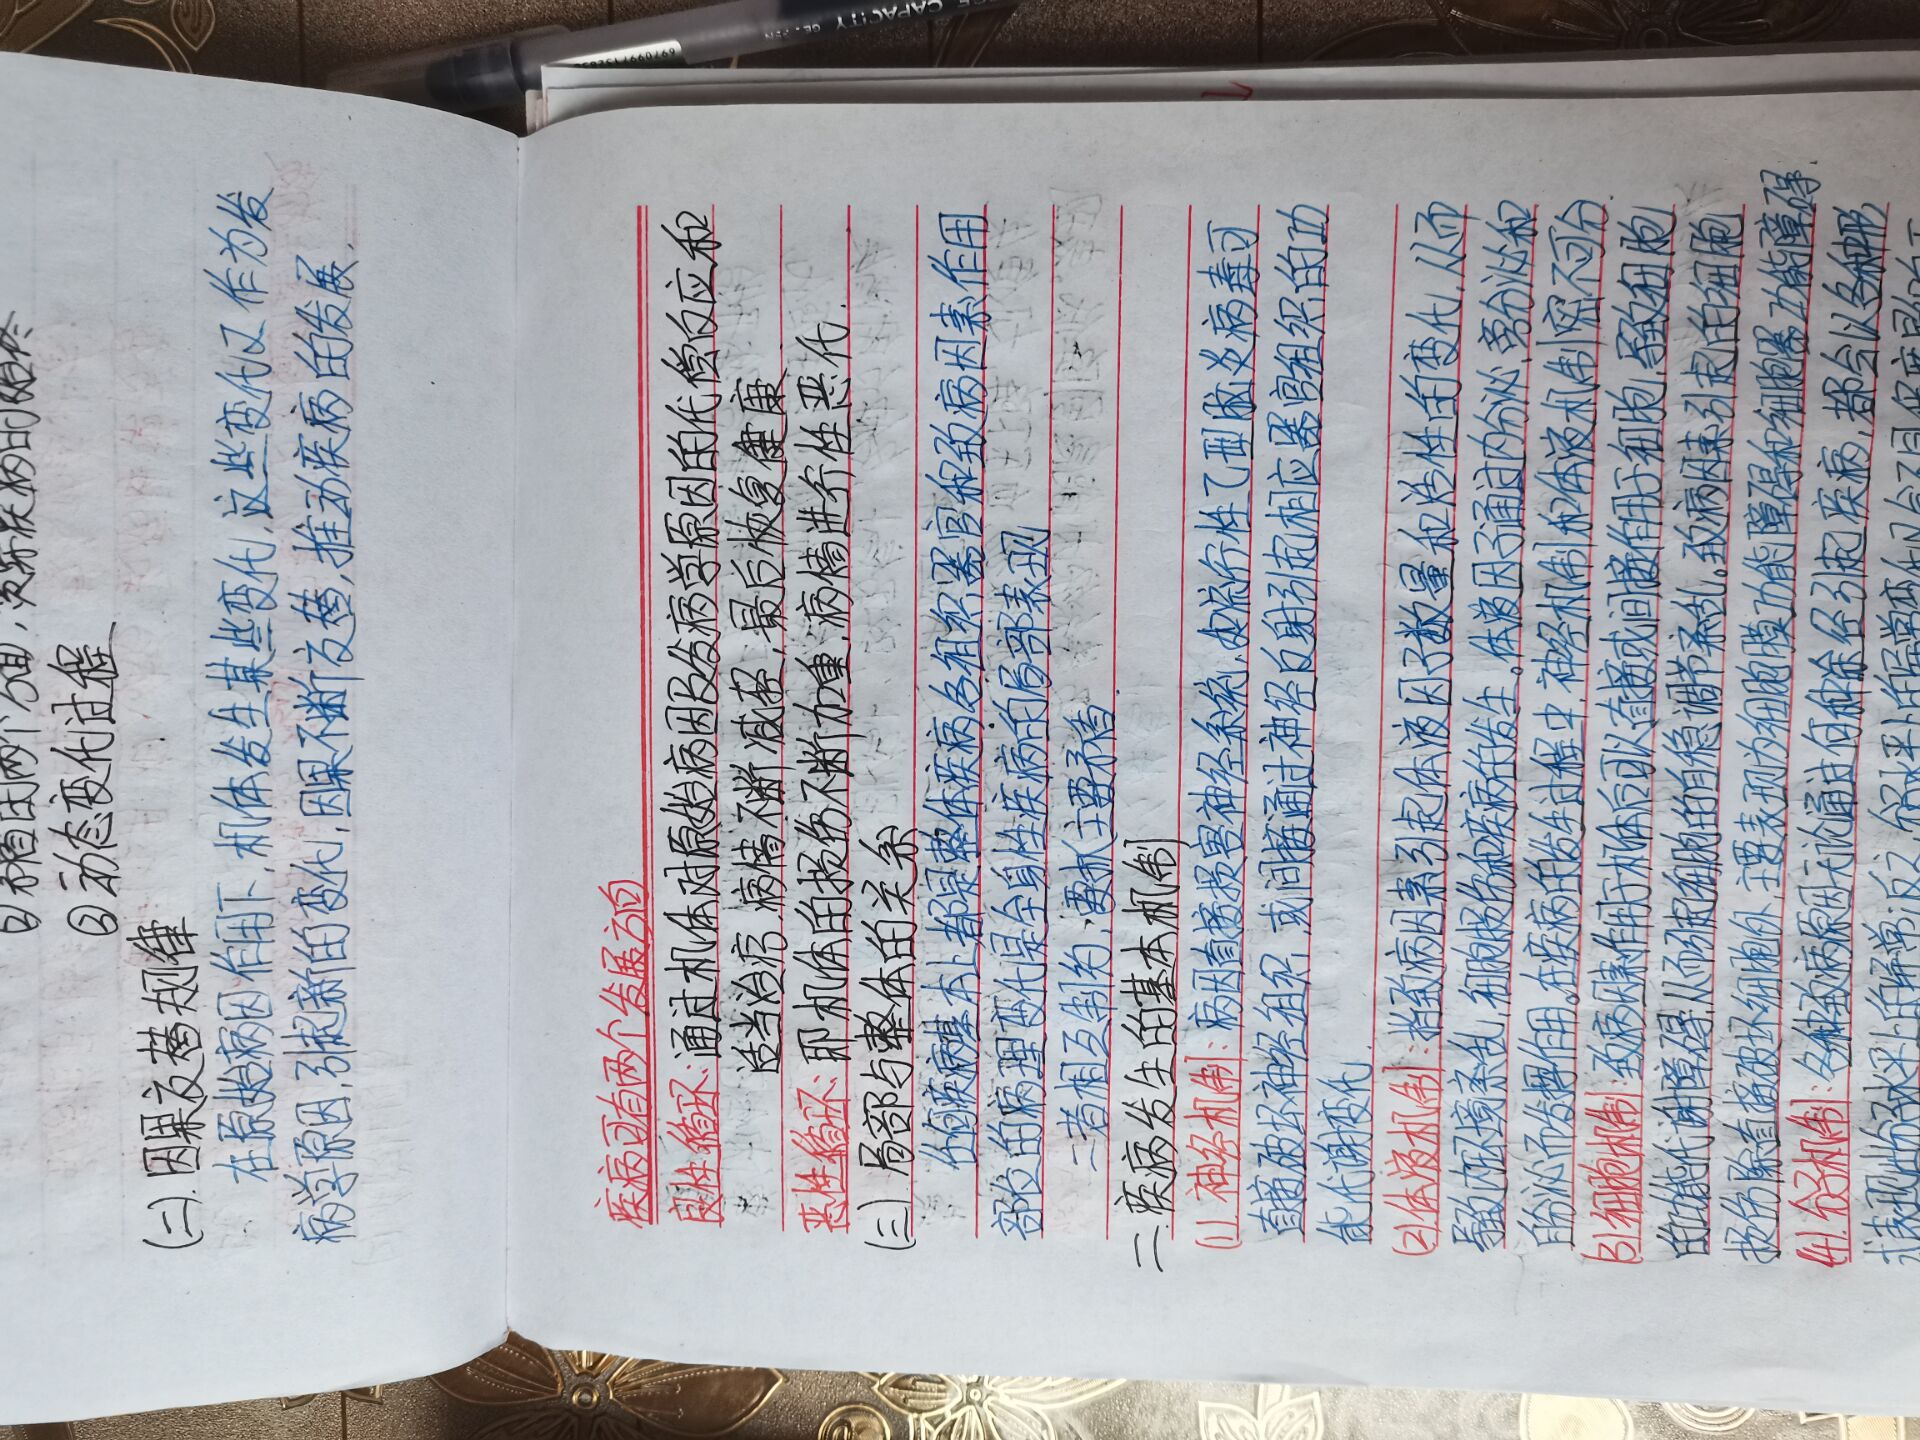 CAPACITY
②存在两个方面,
③动态变化过程
(二).因果交替规律
在原始病因作用下,机体发生某些变化,这些变化又作为发
病学原因,引起新的变化,因果不断交替,推动疾病的发展.
疾病可有两个发展方向
良性循环:通过机体对原始病因及发病学原因的代偿反应和
适当治疗,病情不断减轻,最后恢复健康
恶性循环:即机体的损伤不断加重,病情进行性恶化.
(三)局部与整体的关系
任何疾病基本上都是整体疾病,各组织器官和致病因素作用
部位的病理变化是全身性疾病的局部表现
二者相互制约,要抓主要矛盾
二.疾病发生的基本机制
(1)神经机制:病因直接损害神经系统,如流行性乙型脑炎病毒可
直接破坏神经组织,或间接通过神经反射引起相应器官组织的功
能代谢变化
(2)体液机制:指致病因素引起体液因子数量和活性的变化,从而
导致内环境紊乱,细胞损伤和疾病的发生。体液因子通过内分泌,旁分泌和
自分泌而发挥作用。在疾病的发生过程中,神经机制和体液机制密不可分
(3)细胞机制:致病因素作用于机体后可以直接或间接作用于细胞,导致细胞
的功能代谢障碍,从而引起细胞的自稳调节紊乱。致病因素引起的细胞
损伤除直接破坏细胞外,主要表现为细胞膜功能障碍和细胞器功能障碍
(4)分子机制:各种致病原因无论通过何种途径引起疾病,都会以各种形
式表现出分子水平上的异常;反之,分子水平的异常变化又会不同程度